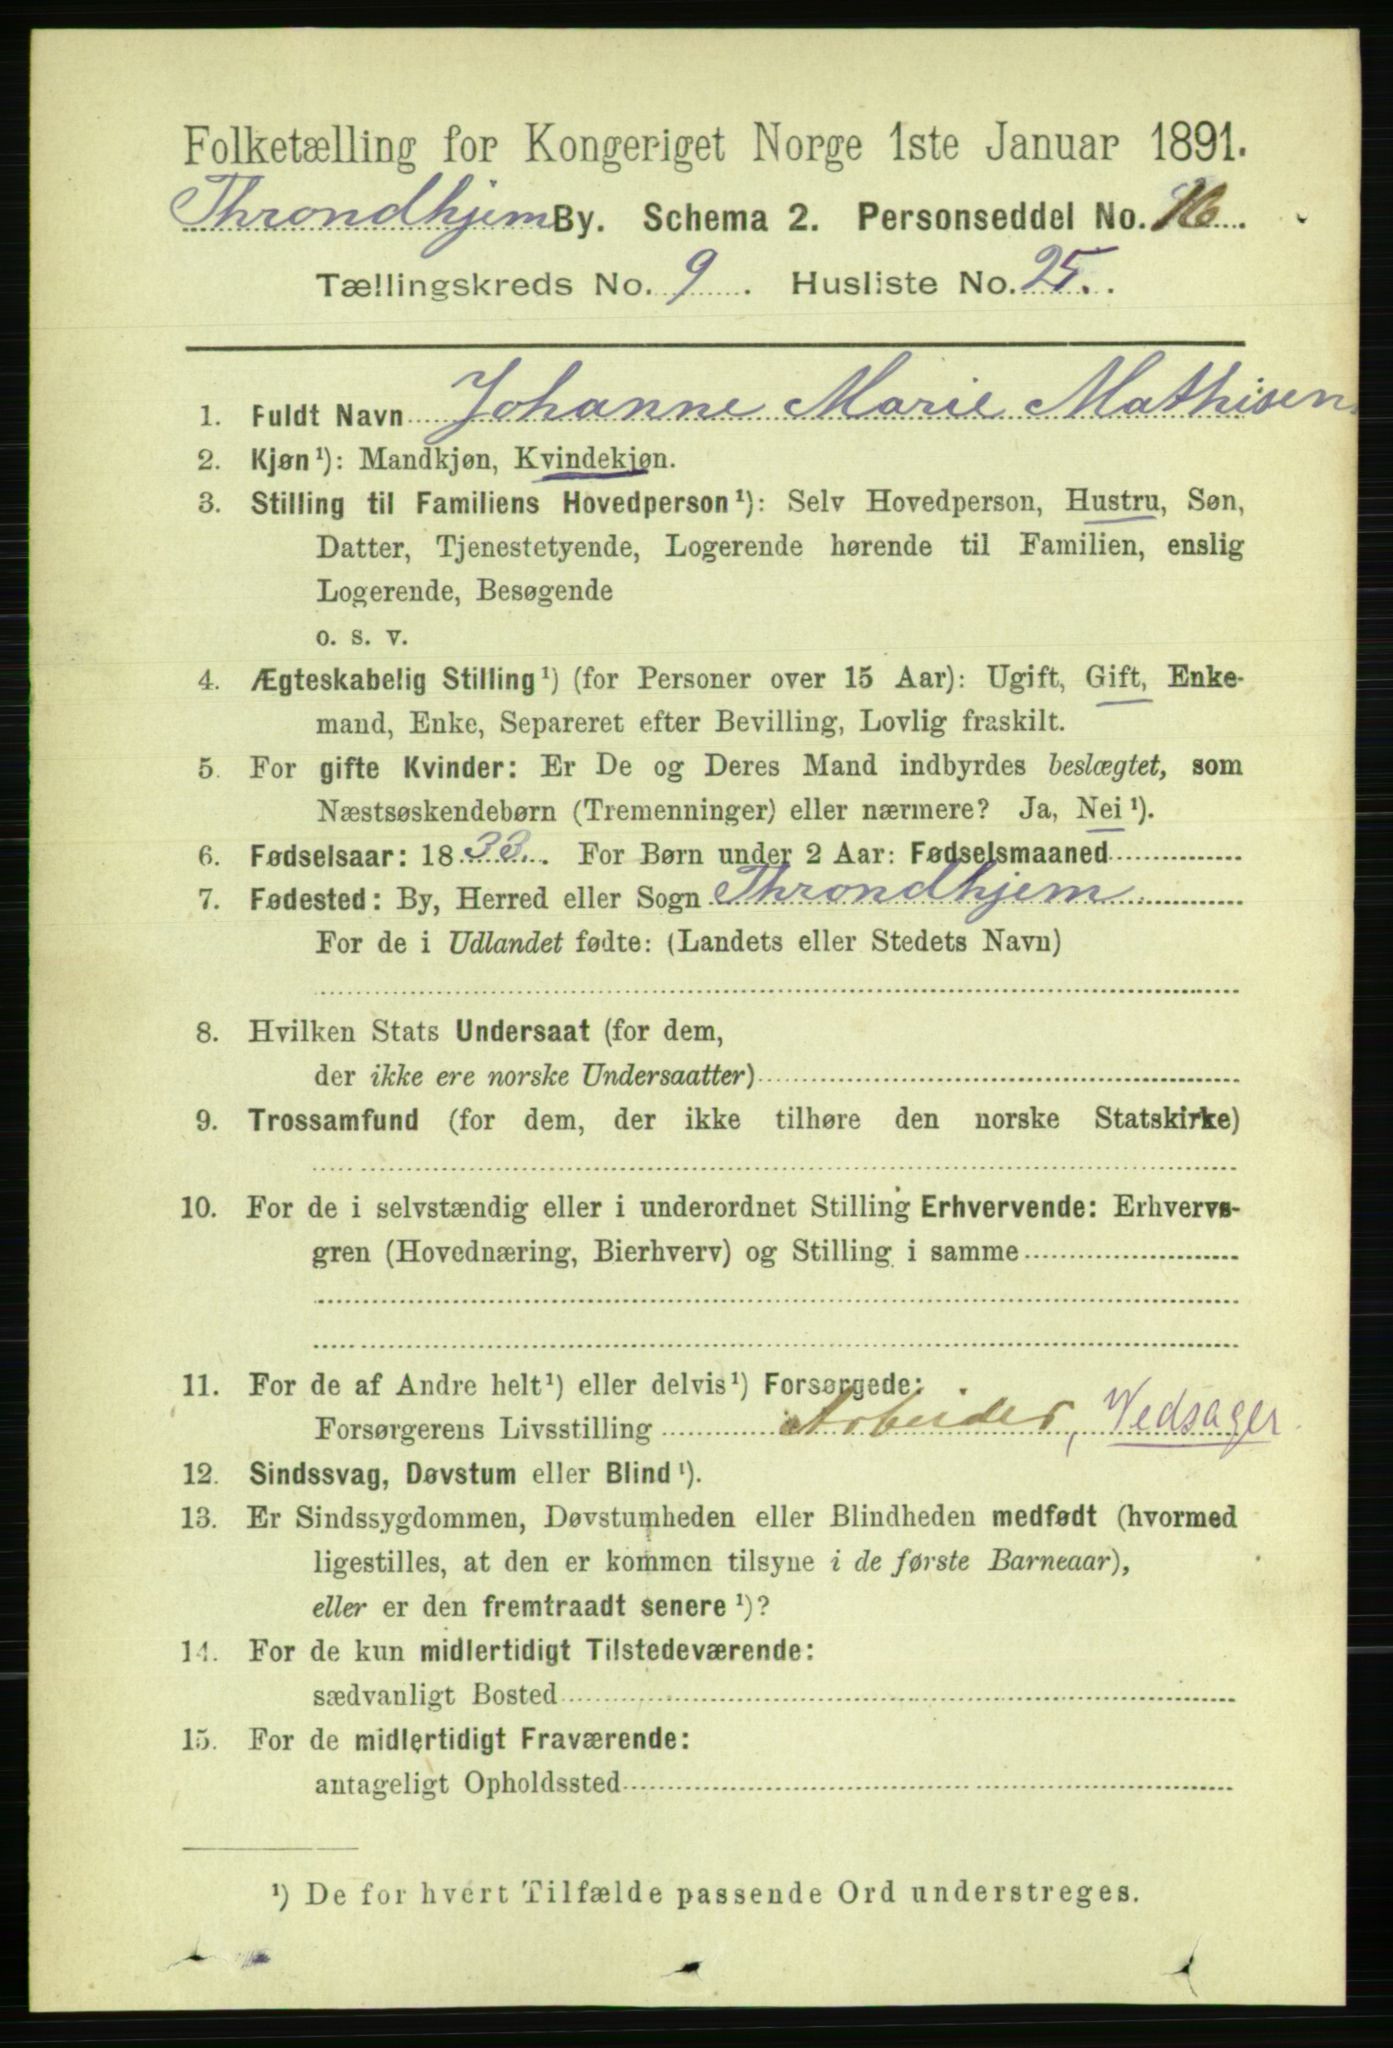 Folketælling for Kongeriget Norge 1ste Januar 1891.
Throndhjem By. Schema 2. Personseddel No. 16.
Tællingskreds No. 9. Husliste No. 25.
1. Fuldt Navn Johanne Marie Mathisen
2. Kjøn¹): Mandkjøn, Kvindekjøn.
3. Stilling til Familiens Hovedperson¹): Selv Hovedperson, Hustru, Søn,
Datter, Tjenestetyende, Logerende hørende til Familien, enslig
Logerende, Besøgende
o. s. v.
4. Ægteskabelig Stilling¹) (for Personer over 15 Aar): Ugift, Gift, Enke-
mand, Enke, Separeret efter Bevilling, Lovlig fraskilt.
5. For gifte Kvinder: Er De og Deres Mand indbyrdes beslægtet, som
Næstsøskendebørn (Tremenninger) eller nærmere? Ja, Nei¹).
6. Fødselsaar: 1833. For Børn under 2 Aar: Fødselsmaaned
7. Fødested: By, Herred eller Sogn Throndhjem
For de i Udlandet fødte: (Landets eller Stedets Navn)
8. Hvilken Stats Undersaat (for dem,
der ikke ere norske Undersaatter)
9. Trossamfund (for dem, der ikke tilhøre den norske Statskirke)
10. For de i selvstændig eller i underordnet Stilling Erhvervende: Erhvervs-
gren (Hovednæring, Bierhverv) og Stilling i samme
11. For de af Andre helt¹) eller delvis¹) Forsørgede:
Forsørgerens Livsstilling Arbeider, Vedsager
12. Sindssvag, Døvstum eller Blind¹).
13. Er Sindssygdommen, Døvstumheden eller Blindheden medfødt (hvormed
ligestilles, at den er kommen tilsyne i de første Barneaar),
eller er den fremtraadt senere¹)?
14. For de kun midlertidigt Tilstedeværende:
sædvanligt Bosted
15. For de midlertidigt Fraværende:
antageligt Opholdssted
¹) De for hvert Tilfælde passende Ord understreges.